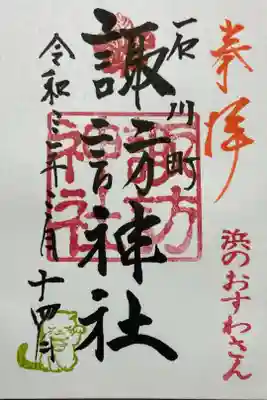 奉拝
浜のおすわさん
石川町
諏訪神社
諏方神社
令和三年三月十四日